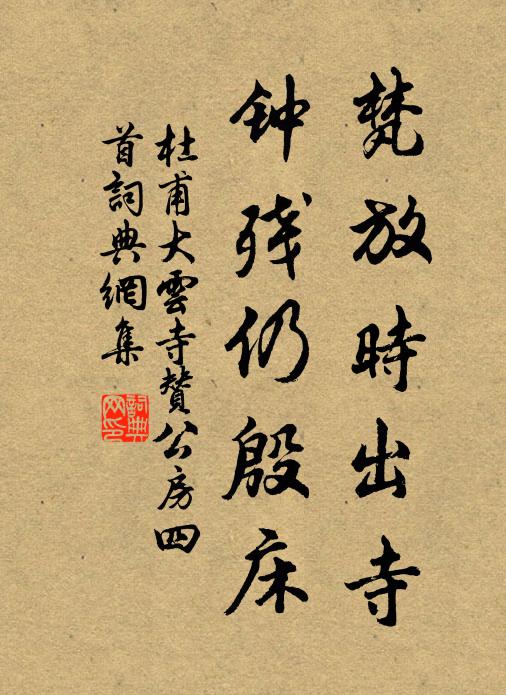 梵放時出寺
钟残仍殷床
杜甫大雲寺賛公房四
首詞典網集
詞典
网印